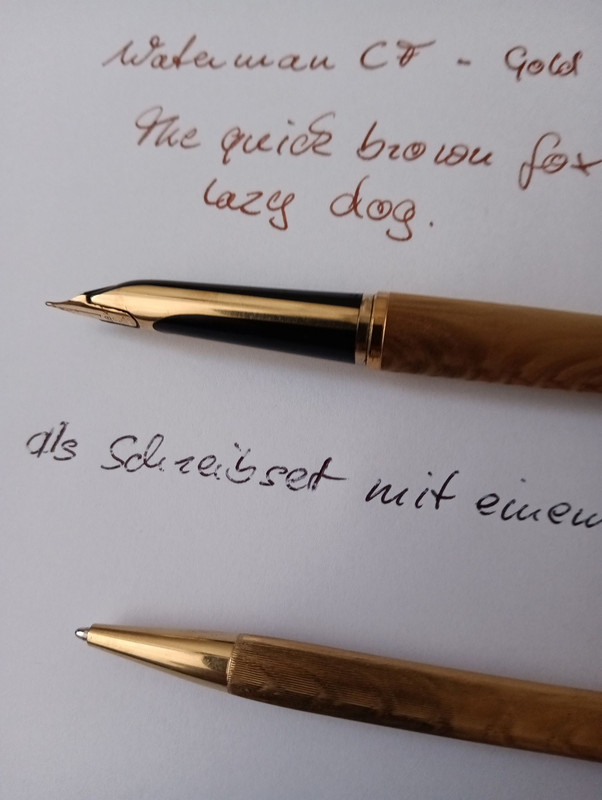 Waterman CF - Gold
The quick brown fox
lazy dog.
als Schreibset mit einem